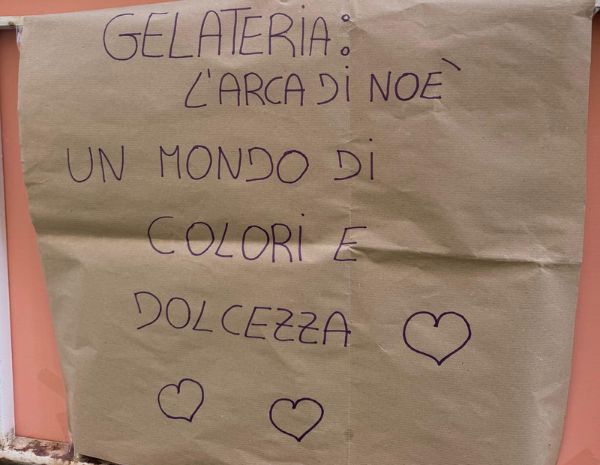 GELATERIA:
L'ARCA DI NOÈ
UN MONDO DI
COLORI E
DOLCEZZA